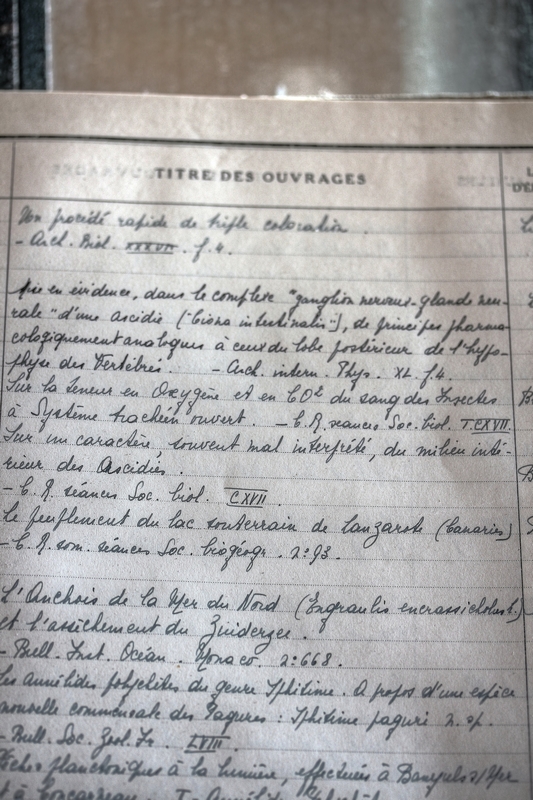 TITRE DES OUVRAGES
Un procédé rapide de triple coloration.
- Arch. Biol. XXXVII. f. 4.
Mise en évidence, dans le complexe "ganglion nerveux-glande neu-
rale" d'une Ascidie ("Ciona intestinalis"), de principes pharma-
cologiquement analogues à ceux du lobe postérieur de l'hypo-
physe des Vertébrés. - Arch. intern. Phys. XL. f. 4.
Sur la teneur en Oxygène et en CO² du sang des Insectes
à Système trachéen ouvert. - C.R. séances Soc. biol. T. CXVII.
Sur un caractère, souvent mal interprété, du milieu inté-
rieur des Ascidies.
- C. R. séances Soc. biol. CXVII.
Le peuplement du lac souterrain de Lanzarote (Canaries)
- C. R. som. séances Soc. biogéogr. n: 93.
L'Anchois de la Mer du Nord (Engraulis encrassicholus L.)
et l'assèchement du Zuiderzee.
- Bull. Inst. Océan. Monaco. n: 668.
Les annélides polychètes du genre Iphitime. A propos d'une espèce
nouvelle commensale des Pagures : Iphitime paguri n. sp.
- Bull. Soc. Zool. Fr. LVIII.
Pêches planctoniques à la lumière, effectuées à Banyuls s/Mer
et à Concarneau. I -